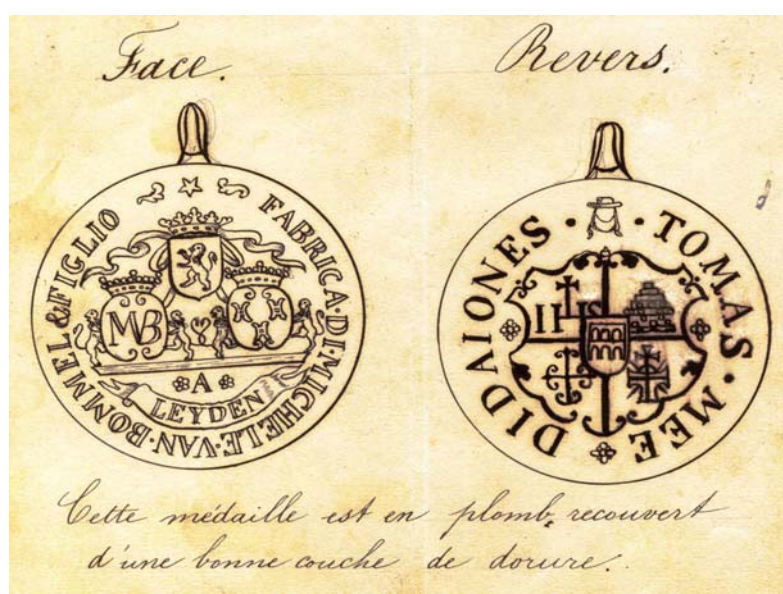 Face.
Revers.
FABRICA·DI·MICHELE·VAN·BOMMEL & FIGLIO
MB
A
LEYDEN
TOMAS·MEE DIDAIONES·
IHS
Cette médaille est en plomb, recouvert
d'une bonne couche de dorure.